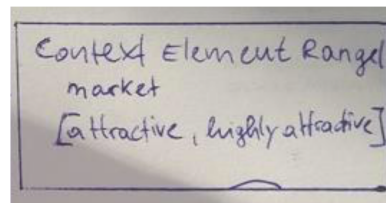 Context Element Range
market
[attractive, highly attractive]